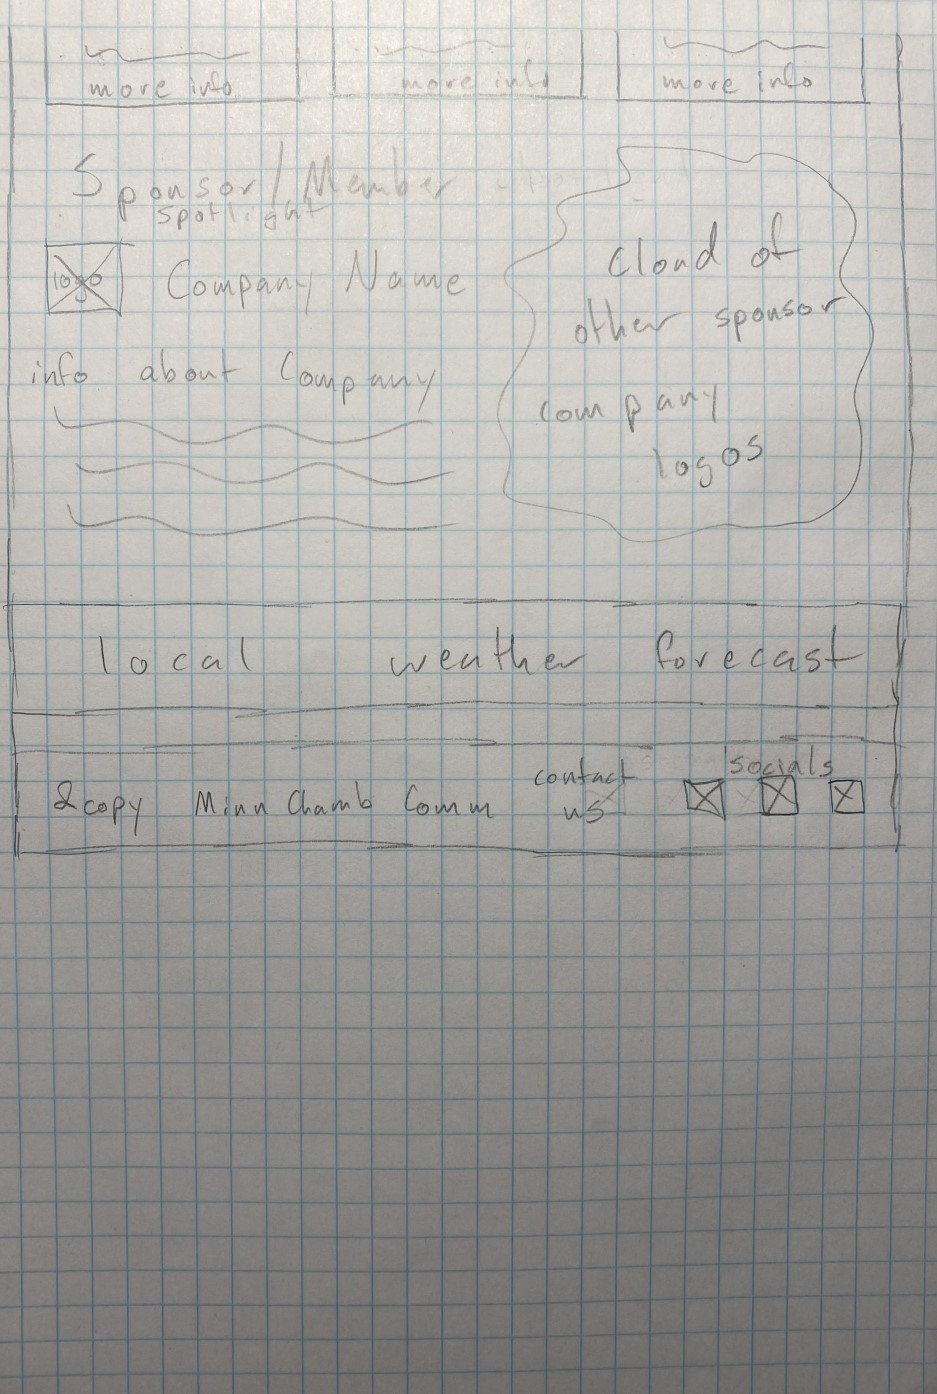 more info
more info
more info
Sponsor/Member
spotlight
logo
Company Name
info about Company
Cloud of
other sponsor
company
logos
local weather forecast
&copy Minn Chamb Comm
contact
us
socials